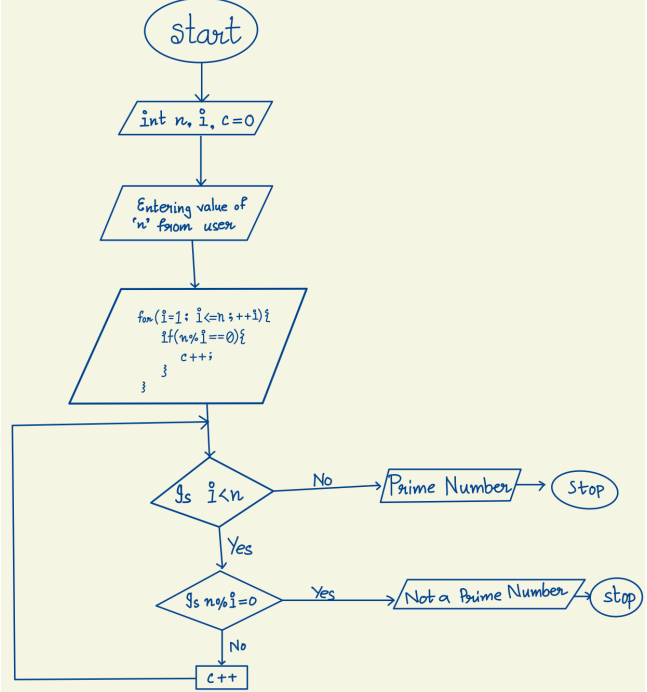 start
int n, i, c=0
Entering value of
'n' from user
for(i=1: i<=n;++i){
if(n%i==0){
c++;
}
}
Is i<n
No
Prime Number
Stop
Yes
Is n%i=0
Yes
Not a Prime Number
stop
No
c++